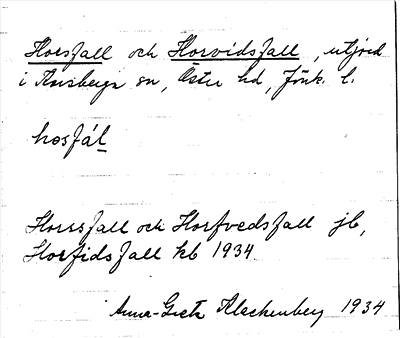 Horsfall och Horvidsfall, utjord
i Ansberga sn, Östra hd, Jönk. l.
hosfál
Horssfall och Horfvedsfall jb,
Horfidsfall kb 1934.
Anna-Greta Klackenberg 1934